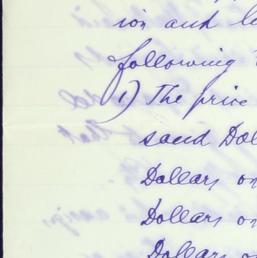 ion and l
following
1) The price
sand Dol
Dollars on
Dollars on
Dollars on